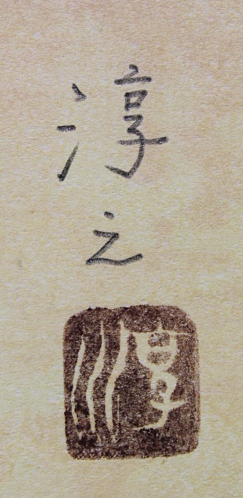 淳之
淳